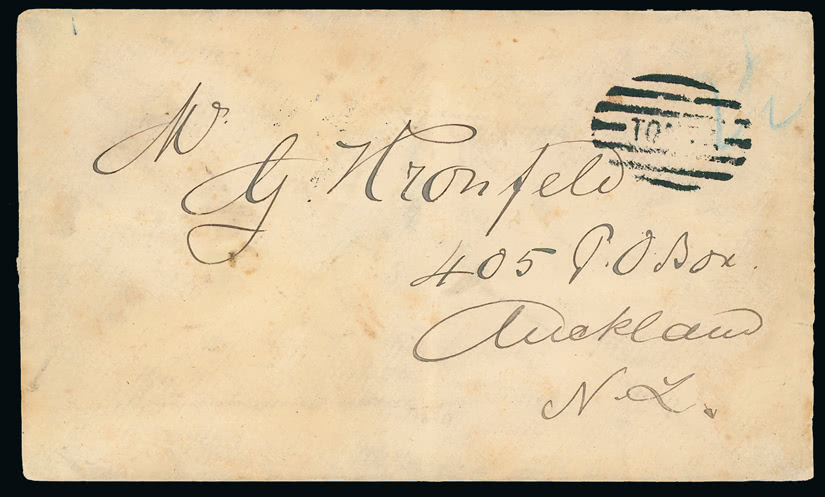 Mr.
G. Kronfeld
405 P.O Box.
Auckland
N.Z.